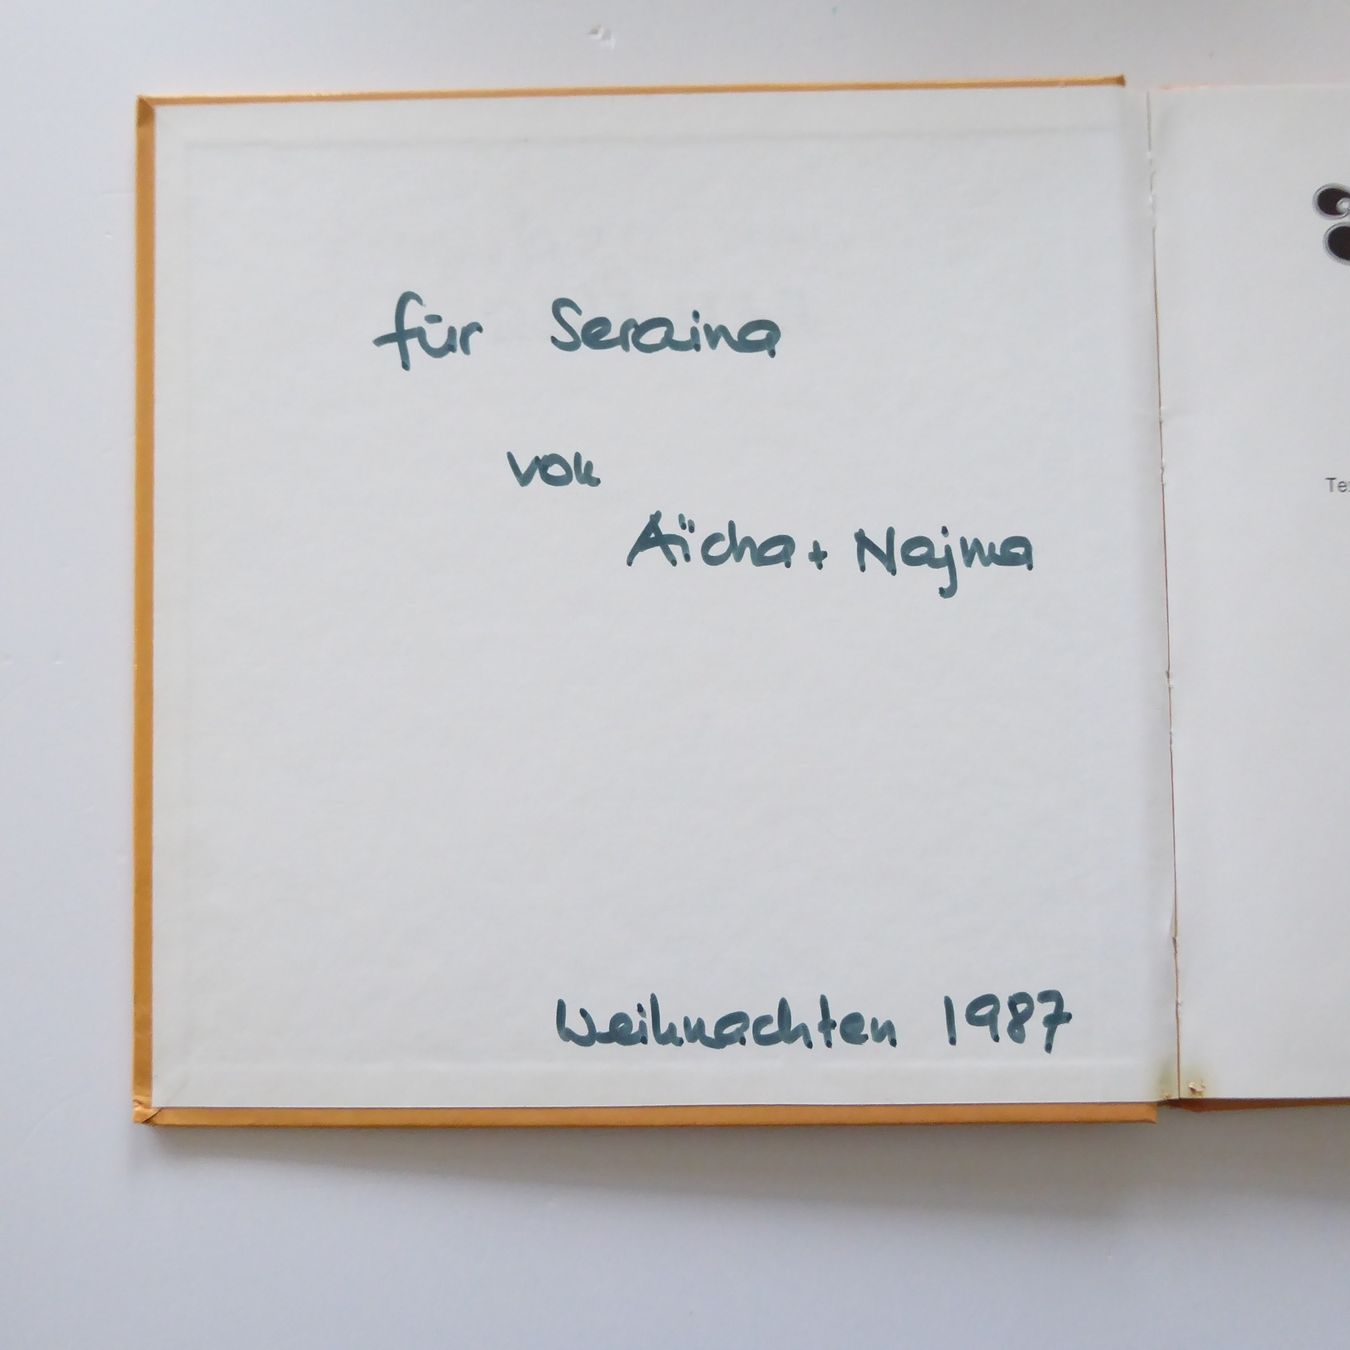 für Seraina
von
Aïcha + Najma
Weihnachten 1987